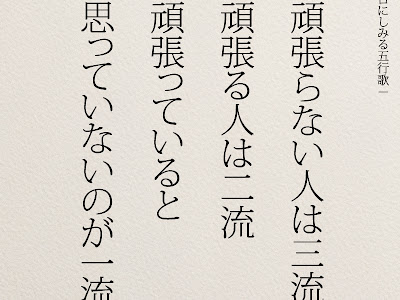 にしみる五行歌
頑張らない人は三流
頑張る人は二流
頑張っていると
思っていないのが一流